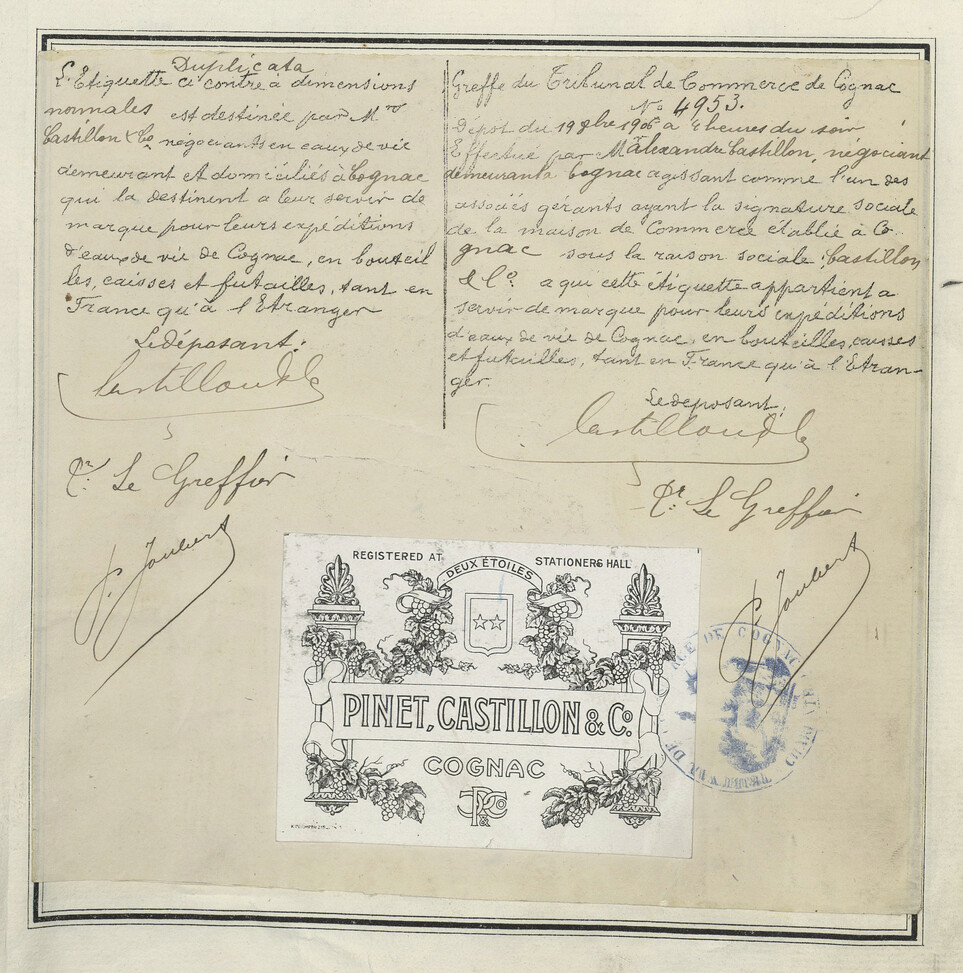 Duplicata
L'Etiquette ci contre à dimensions
normales est destinée par M^rs
Castillon & Co négociants en eaux de vie
demeurant et domiciliés à Cognac
qui la destinent a leur servir de
marque pour leurs expéditions
d'eaux de vie de Cognac, en bouteil
les, caisses et futailles, tant en
France qu'à l'Etranger
Le déposant:
Castillon & Co
Pr. Le Greffier
P. Joubert
Greffe du Tribunal de Commerce de Cognac
No 4953.
Dépot du 19 9bre 1906 à 4 heures du soir
Effectué par M alexandre Castillon, négociant
demeurant a Cognac agissant comme l'un des
associés gérants ayant la signature sociale
de la maison de Commerce etablie à Co
gnac sous la raison sociale: Castillon
& Co. a qui cette étiquette appartient a
servir de marque pour leurs expéditions
d'eaux de vie de Cognac, en bouteilles, caisses
et futailles, tant en France qu'à l'Etran-
ger.
Le deposant:
Castillon & Co
Pr. Le Greffier
P. Joubert
REGISTERED AT STATIONERS HALL
DEUX ÉTOILES
PINET, CASTILLON & Co.
COGNAC
DE COGNAC